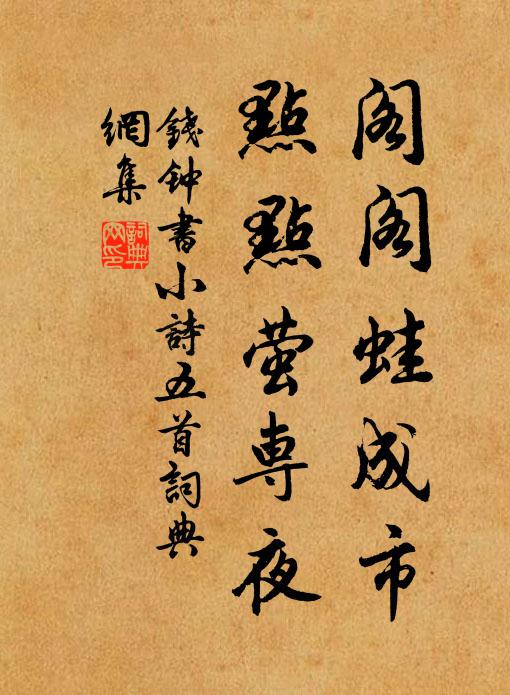 閣閣蛙成市
點點萤専夜
錢钟書小詩五首詞典
網集
詞典
网印